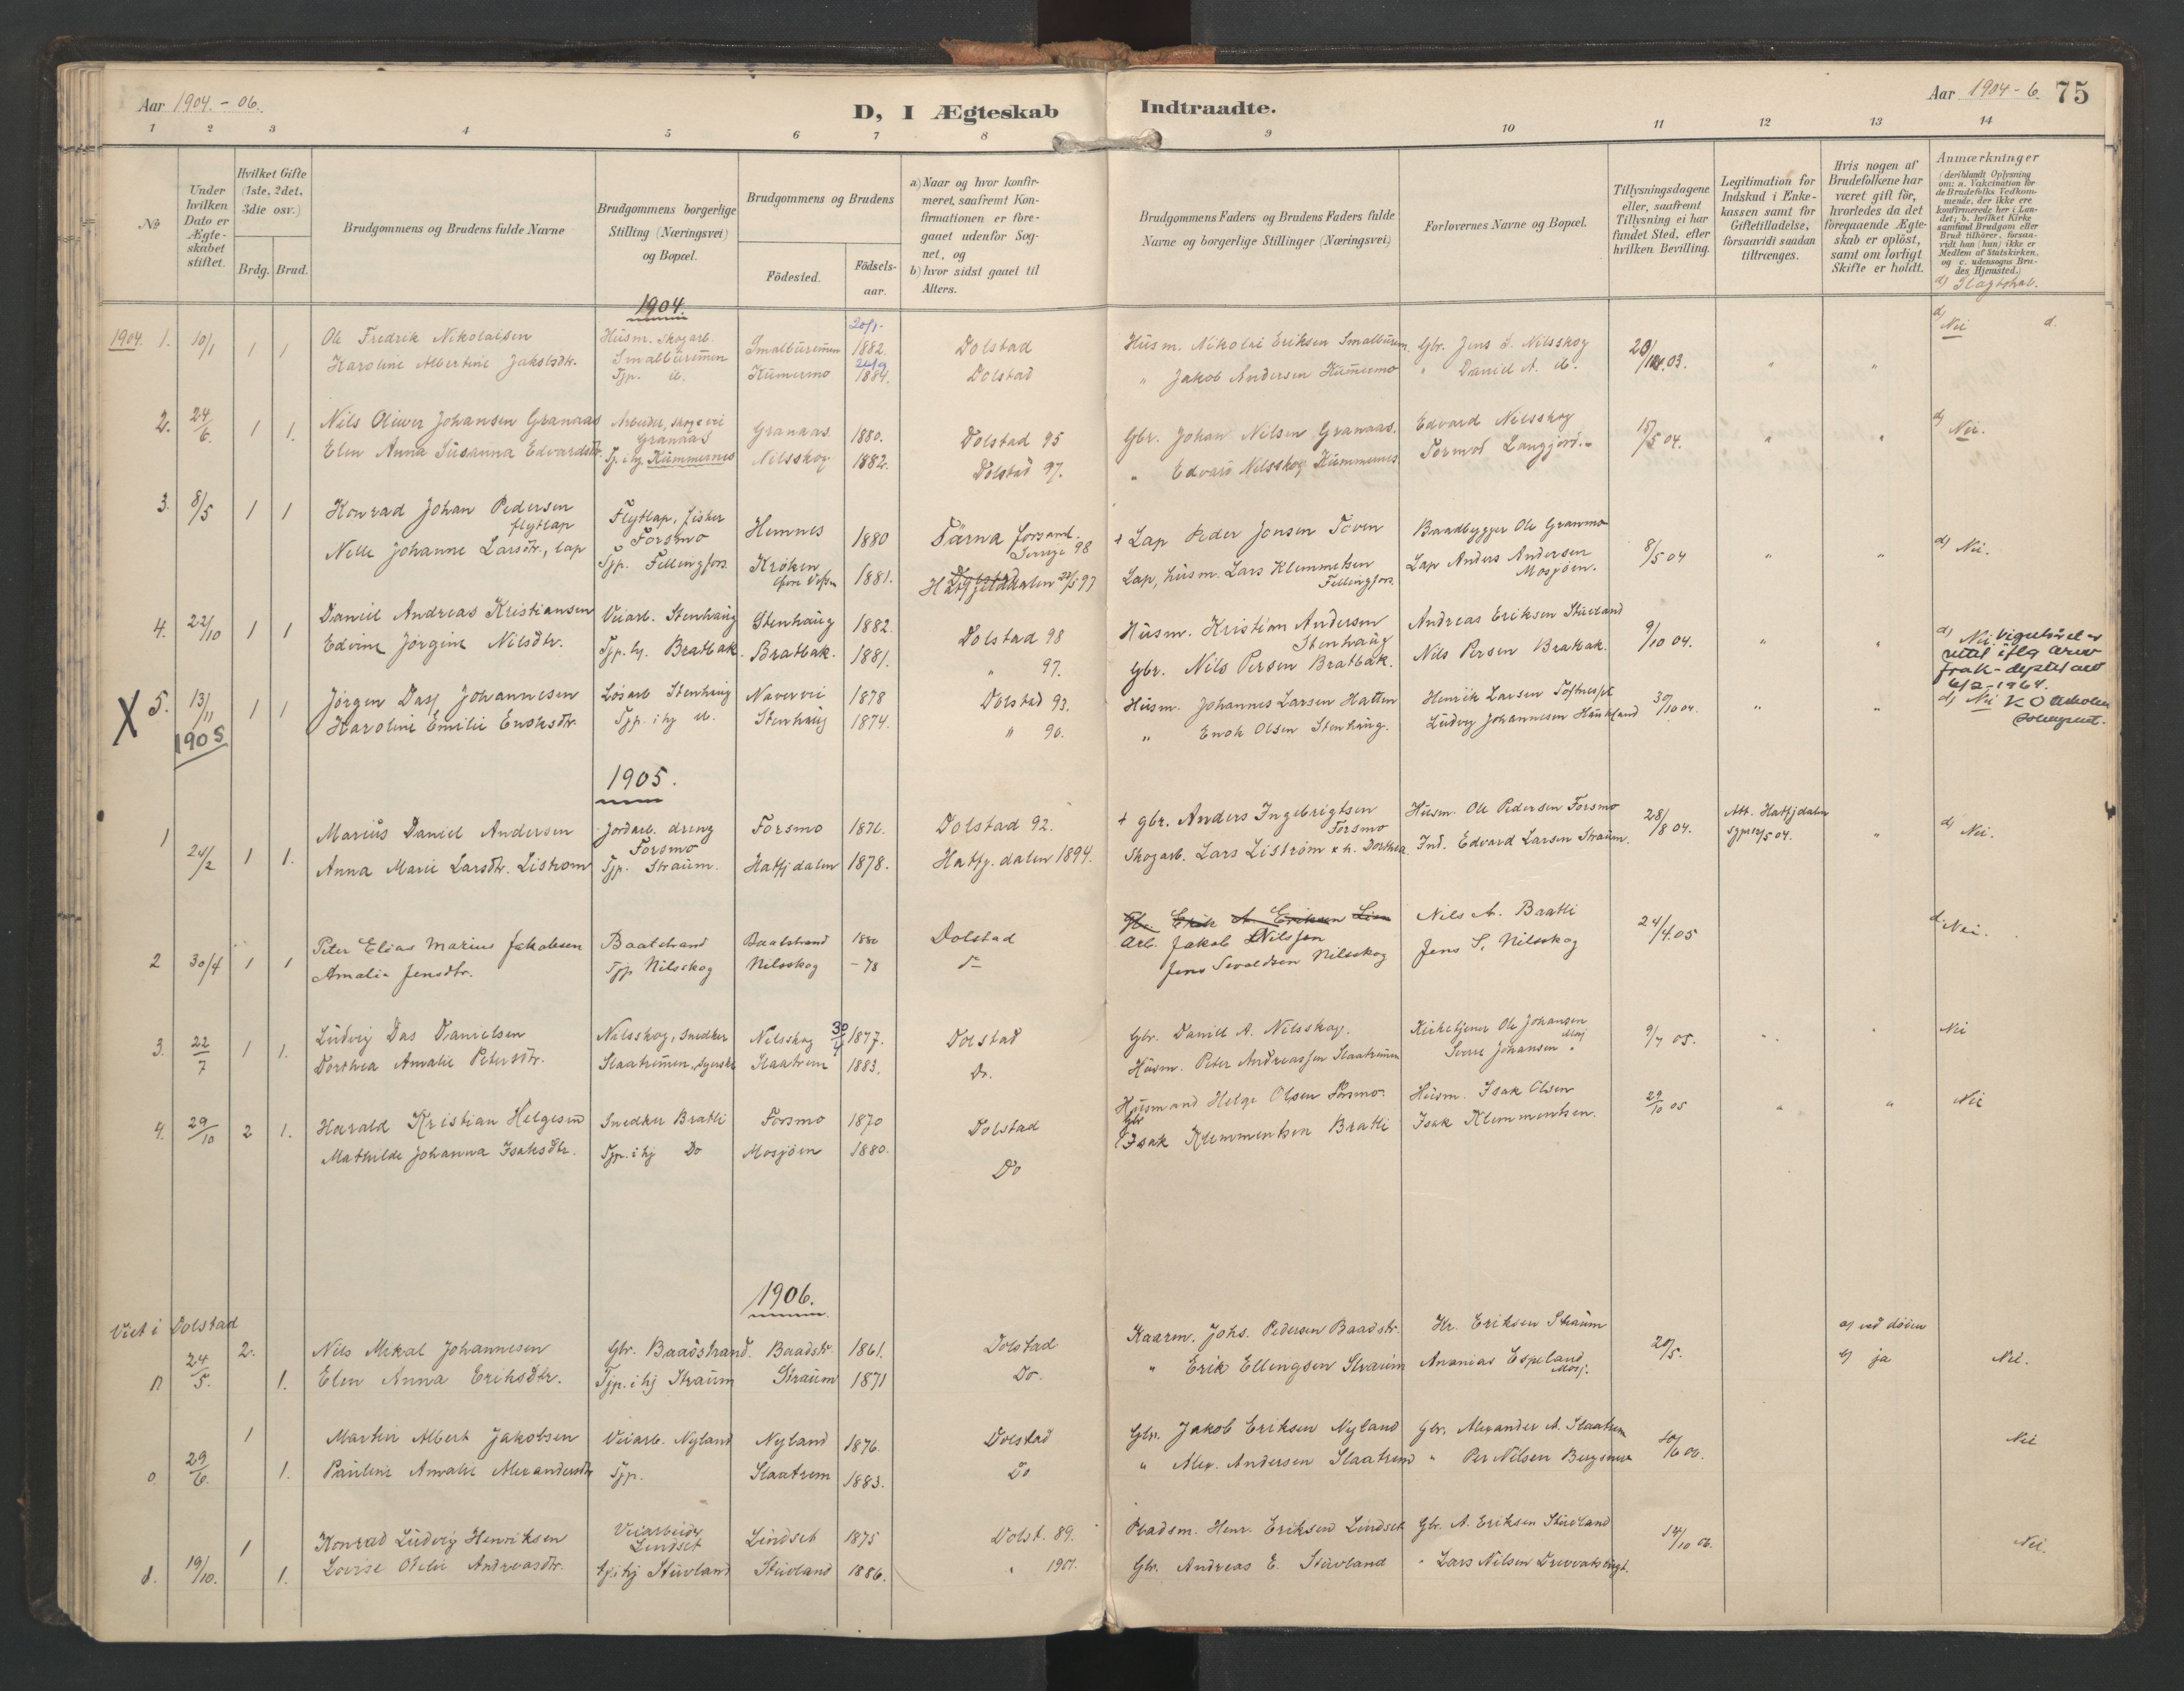 Aar 1904.-06.
D, I Ægteskab Indtraadte.
Aar 1904-6. 75
1 2 3 4 5 6 7 8 9 10 11 12 13 14
№
Under hvilken Dato er Ægteskabet stiftet.
Hvilket Gifte (1ste, 2det, 3die osv.)
Brdg. Brud.
Brudgommens og Brudens fulde Navne
Brudgommens borgerlige Stilling (Næringsvei) og Bopæl.
Brudgommens og Brudens
Födested.
Födselsaar.
a) Naar og hvor konfirmeret, saafremt Konfirmationen er foregaaet udenfor Sognet, og
b) hvor sidst gaaet til Alters.
Brudgommens Faders og Brudens Faders fulde Navne og borgerlige Stillinger (Næringsvei)
Forlovernes Navne og Bopæl.
Tillysningsdagene eller, saafremt Tillysning ei har fundet Sted, efter hvilken Bevilling.
Legitimation for Indskud i Enkekassen samt for Giftetilladelse, forsaavidt saadan tiltrænges.
Hvis nogen af Brudefolkene har været gift för, hvorledes da det foregaaende Ægteskab er oplöst, samt om lovligt Skifte er holdt.
Anmærkninger (deriblandt Oplysning om: a. Vakcination for de Brudefolks Vedkommende, der ikke ere konfirmerede her i Landet; b. hvilket Kirkesamfund Brudgom eller Brud tilhörer, forsaavidt han (hun) ikke er Medlem af Statskirken, og c. udensogns Brudes Hjemsted.)
d) Slagtskab.
1904.
1904. 1. 10/1 1 1 Ole Fredrik Nikolaisen Husm. Skogarb. Smalburemen 20/1- 1882. Dolstad Husm. Nikolai Eriksen Smalburem. Gbr. Jens S. Nilsskog d) Nei d.
Karoline Albertine Jakobsdtr. Tjp. d. Kummermo 1884. Dolstad " Jakob Andersen Kummermo " Daniel A. d. " "
2. 24/6. 1 1. Nils Oliver Johansen Granaas Arbeider, Granaas Granaas 1880. Dolstad 95 Gbr. Johan Nilsen Granaas. Edvard Nilsskog 15/5 04. " " d) Nei.
Elen Anna Susanna Edvardsdtr. Tj. i hj. Kummernes Nilsskog 1882. Dolstad 97. " Edvard Nilsskog Kummernes Tormod Langjord
3. 8/5 1 1 Konrad Johan Pedersen flytlap Flytlap, fisker Forsmo Hemnes 1880 Tärna forsaml. Sverige 98 + Lap Peder Jonsen Toven Baadbygger Ole Granmo 8/5 04 " " d) Nei.
Nelle Johanne Larsdtr., lap Tjp. Fellingfors Kroken 1881. Hatfjelddalen 97 Lap, husm. Lars Klemmetsen Fellingfors Lap Anders Andersen Mosjøen.
4. 22/10 1 1 Daniel Andreas Kristiansen Veiarb. Stenhaug Stenhaug 1882. Dolstad 98 Husm. Kristian Andersen Stenhaug Andreas Eriksen Stuvland 9/10 04. " " d) Nei
Edvine Jørgine Nilsdtr. Tjp. hj. Bratbak. Bratbak. 1881. " 97. Gbr. Nils Persen Bratbak. Nils Persen Bratbak.
6/2-1964.
X 5. 13/11 1 1 Jørgen Dass Johannesen Løsarb. Stenhaug Navervei 1878 Dolstad 93. Husm. Johannes Larsen Hatten Henrik Larsen 30/10 04. " " d) Nei
Karoline Emilie Enoksdtr. Tjp. i hj. d. Stenhaug 1874. " 90. " Enok Olsen Stenhaug. Ludvig Johannesen Haukland
1905
1905.
1 24/2 1 1. Marius Daniel Andersen Jordarb. dreng Forsmo Forsmo 1876. Dolstad 92. + gbr. Anders Ingebrigtsen Forsmo Husm. Ole Pedersen Forsmo 28/8 04. Att. Hatfjdalen " d) Nei.
Anna Marie Larsdtr. Listrom Tjp. Straum. Hatfjdalen 1878. Hatfj. dalen 1894. Skogarb. Lars Liström Dorthea. Ind. Edvard Larsen Straum.
2 30/4 1 1 Peter Elias Marius Jakobsen Baatstrand Baatstrand 1880 Dolstad Arb. Jakob Nilssen Nils A. Baatli 24/4.05 d. Nei.
Amalia Jensdtr. Tjp Nilsskog Nilsskog -78 do Jens Sevaldsen Nilsskog Jens S. Nilsskog
3. 22/7 1 1. Ludvig Das Danielsen Nilsskog, Snedker Nilsskog 30/4 1877. Dolstad Gbr. Daniel A. Nilsskog. Kirketjener Ole Johansen Mosj 9/7 05. Nei
Dorthea Amalie Petersdtr. Slaatremen, Syerske Slaatrem 1883. Do. Husm. Peter Andreassen Slaatremen Sverre Johansen "
4. 29/10 2 1. Harald Kristian Helgesen Snedker Bratli Forsmo 1870 Dolstad Husmand Helge Olsen Forsmo. Husm. Isak Olsen 29/10 05 " " Nei
Mathilde Johanna Isaksdtr. Tjp. i hj Do Mosjöen 1880. Do Gbr Isak Klemmentsen Bratli Isak Klemmentsen.
1906.
Viet i Dolstad
24/5. 2. Nils Mikal Johannesen Gbr. Baadstrand. Baadstr. 1861. Dolstad Kaarm. Johs. Pedersen Baadstr. Kr. Eriksen Straum 20/5. a) ved døden
1. Elen Anna Eriksdtr. Tjp. i hj Straum Straum 1871 Do. " Erik Ellingsen Straum Ananias Espeland Mosj. b) ja Nei.
29/6. 1 Martin Albert Jakobsen Veiarb. Nyland Nyland 1876. Dolstad Gbr. Jakob Eriksen Nyland Gbr. Alexander A. Slaatrem 10/6 06. Nei
1. Pauline Amalie Alexandersdtr Tjp. Slaatrem 1883. Do " Alex. Andersen Slaatrem " Per Nilsen
19/10. 1 Konrad Ludvig Henriksen Veiarbeider Lindset Lindset 1875 Dolst. 89. Pladsm. Henr. Eriksen Lindset Gbr. A. Eriksen Stuvland 14/10 06. Nei.
1. Lovise Otelie Andreasdtr. tj i hj Stuvland Stuvland 1886. " 1901. Gbr. Andreas E. Stuvland " Lars Nilsen